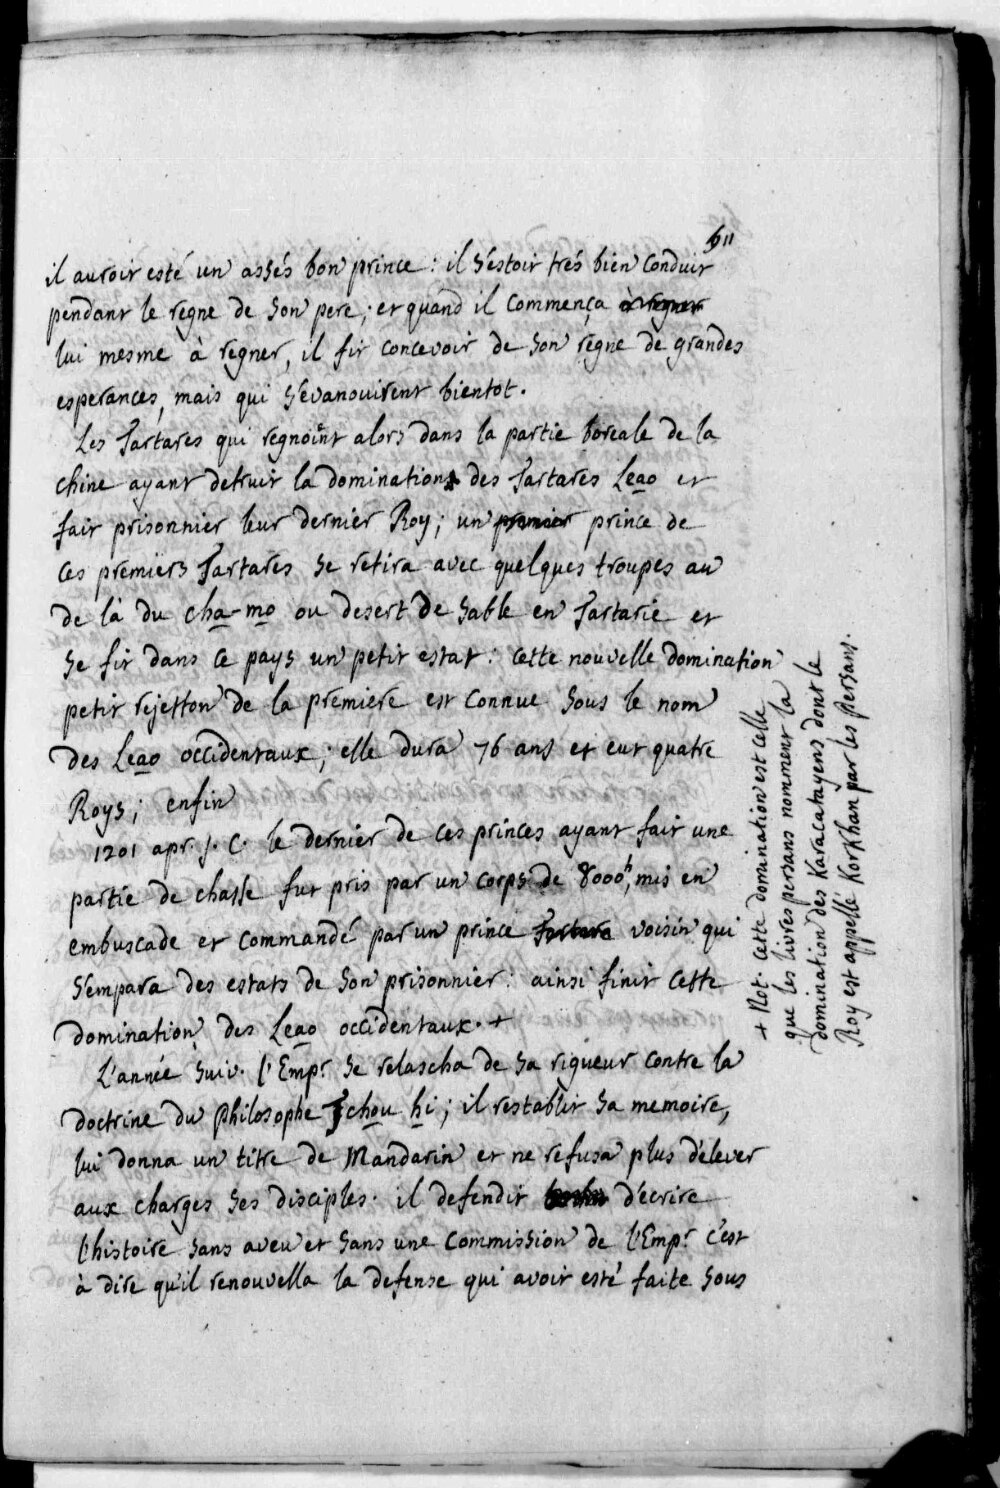 611
il auroit esté un assés bon prince : il s'estoit trés bien conduit
pendant le regne de son pere ; et quand il commença à regner
lui mesme à regner, il fit concevoir de son régne de grandes
esperances, mais qui s'évanouirent bientot.
Les Tartares qui regnoient alors dans la partie boreale de la
chine ayant detruit la domination des Tartares Leao et
fait prisonnier leur dernier Roy ; un premier prince de
ces premiers Tartares se retira avec quelques troupes au
de là du cha-mo ou desert de sable en Tartarie et
se fit dans ce pays un petit estat : cette nouvelle domination
petit rejetton de la premiere est connue sous le nom
des Leao occidentaux ; elle dura 76 ans et eut quatre
Roys ; enfin
1201 apr. J. C. le dernier de ces princes ayant fait une
partie de chasse fut pris par un corps de 8000 h, mis en
embuscade et commandé par un prince Tartare voisin qui
s'empara des estats de son prisonnier : ainsi finit cette
domination des Leao occidentaux. +
L'année suiv. l'Emp.r se relascha de sa rigueur contre la
doctrine du philosophe Tchou hi ; il restablit sa memoire,
lui donna un titre de Mandarin et ne refusa plus d'elever
aux charges ses disciples. il defendit d'écrire
l'histoire sans aveu et sans une commission de l'Emp.r c'est
à dire qu'il renouvella la defense qui avoit esté faite sous
+ Not. Cette domination est celle
que les livres persans nomment la
domination des Karacatayens dont le
Roy est appellé Korkhan par les persans.